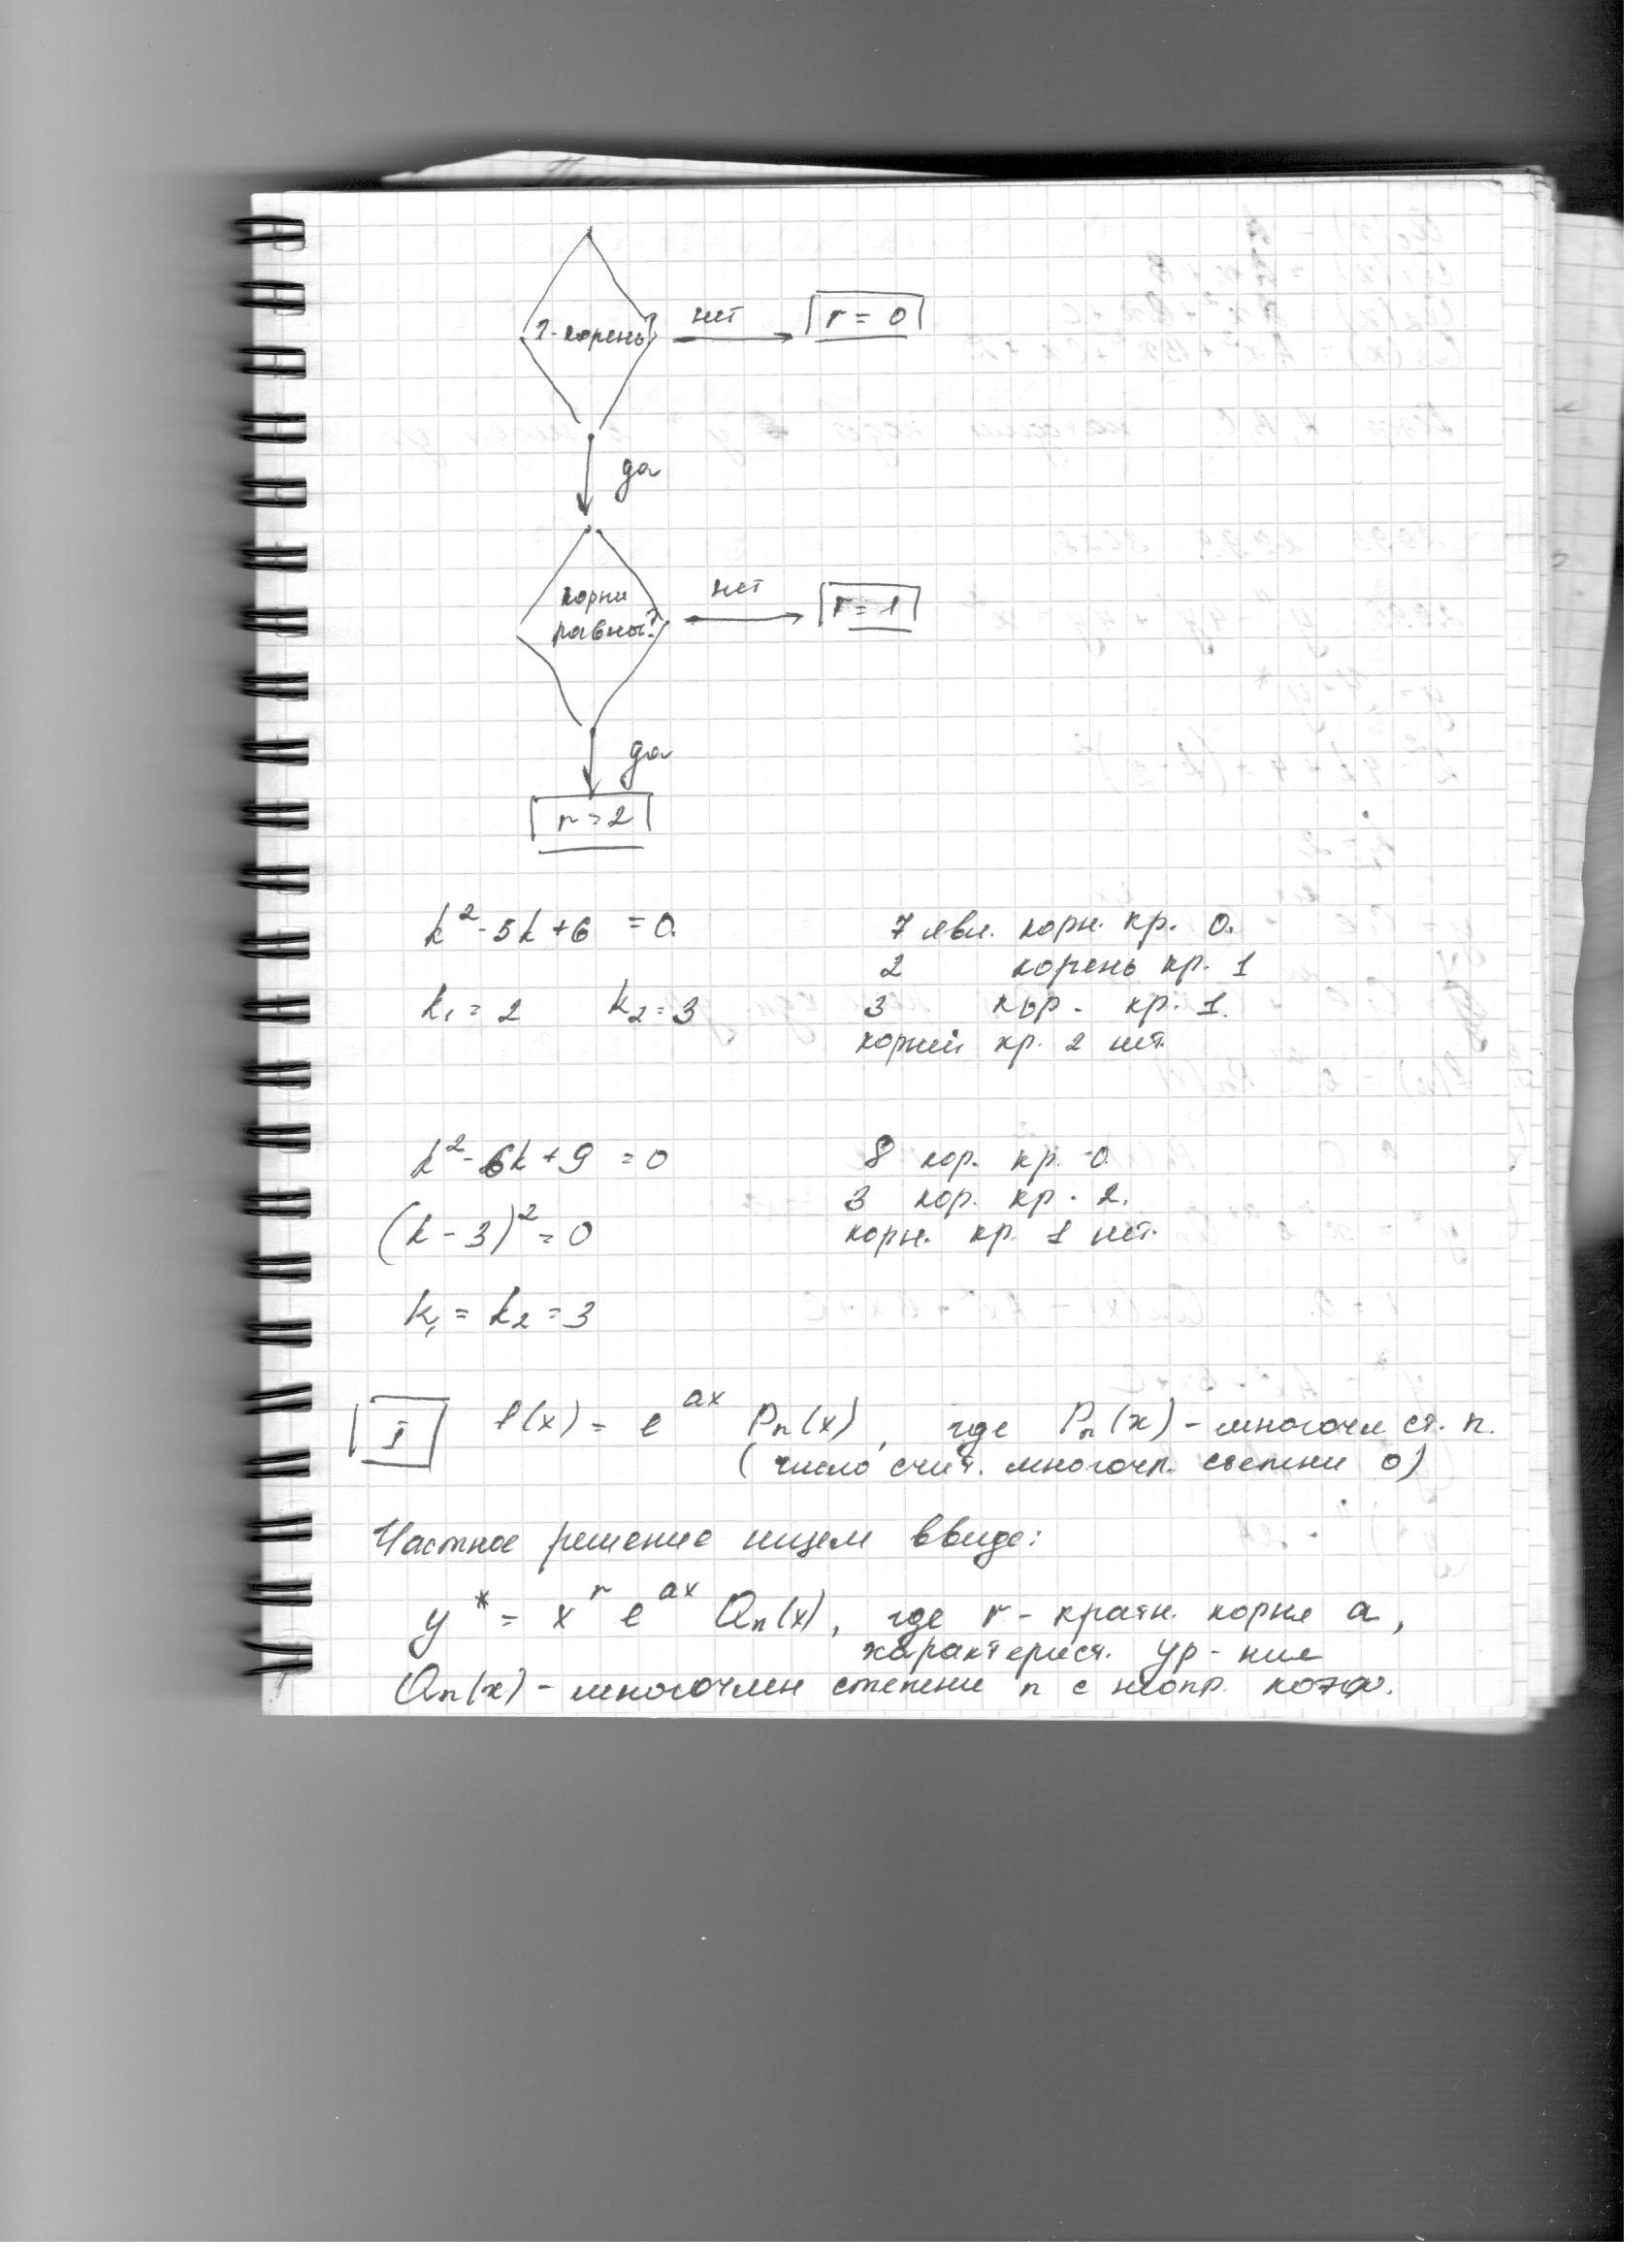 ?-корень?
нет
r = 0
да
корни
равны?
нет
r = 1
да
r = 2
k² - 5k + 6 = 0.
7 явл. корн. кр. 0.
2 корень кр. 1
k₁ = 2 k₂ = 3
3 кор. кр. 1.
корней кр. 2 нет.
k² - 6k + 9 = 0
8 кор. кр. 0
3 кор. кр. 2.
(k - 3)² = 0
корн. кр. 1 нет.
k₁ = k₂ = 3
I f(x) = e^{ax} Pₙ(x), где Pₙ(x) - многочл ст. n.
(число счит. многочл. степени 0)
Частное решение ищем ввиде:
y* = x^r e^{ax} Qₙ(x), где r - кратн. корня a,
характерист. ур-ния
Qₙ(x) - многочлен степени n с неопр. коэф.